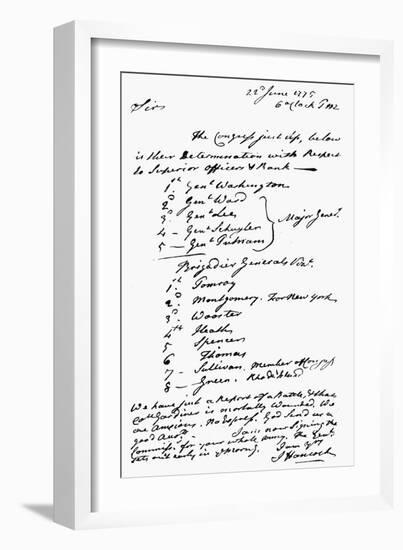 22d June 1775
6 o'Clock P.M.
Sir
The Congress just up, below
is their Determination with Respect
to Superior Officers & Rank—
1st Genl Washington
2d Genl Ward
3d Genl Lee
4 - Genl Schuyler
5 - Genl Putnam
Major Genl.
Brigadier Generals Vizt.
1st Pomroy
2d Montgomery. For New York
3d Wooster
4th Heath
5 Spencer
6 Thomas
7 - Sullivan. Member of Congress
8 - Green. Rhode Island
We have just a Report of a Battle, & that
Coll Gardiner is mortally Wounded. We
are Anxious. No Express. God Send us a
good Acct. I am now Signing the
Commiss. for your whole Army. The Genl
Sets out early in ye Morng. I am
J Hancock